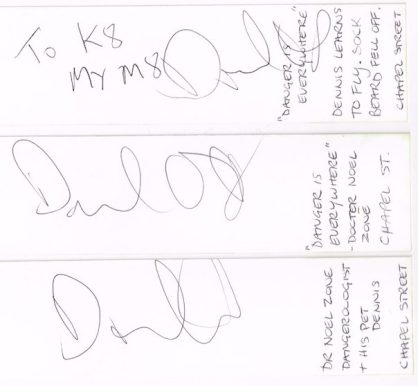 To K8
My M8
"DANGER IS
EVERYWHERE"
DENNIS LEARNS
TO FLY. SOCK
BEARD FELL OFF.
CHAPEL STREET
"DANGER IS
EVERYWHERE"
- DOCTER NOEL
ZONE
CHAPEL ST.
DR NOEL ZONE
DANGEROLOGIST
+ HIS PET
DENNIS
CHAPEL STREET